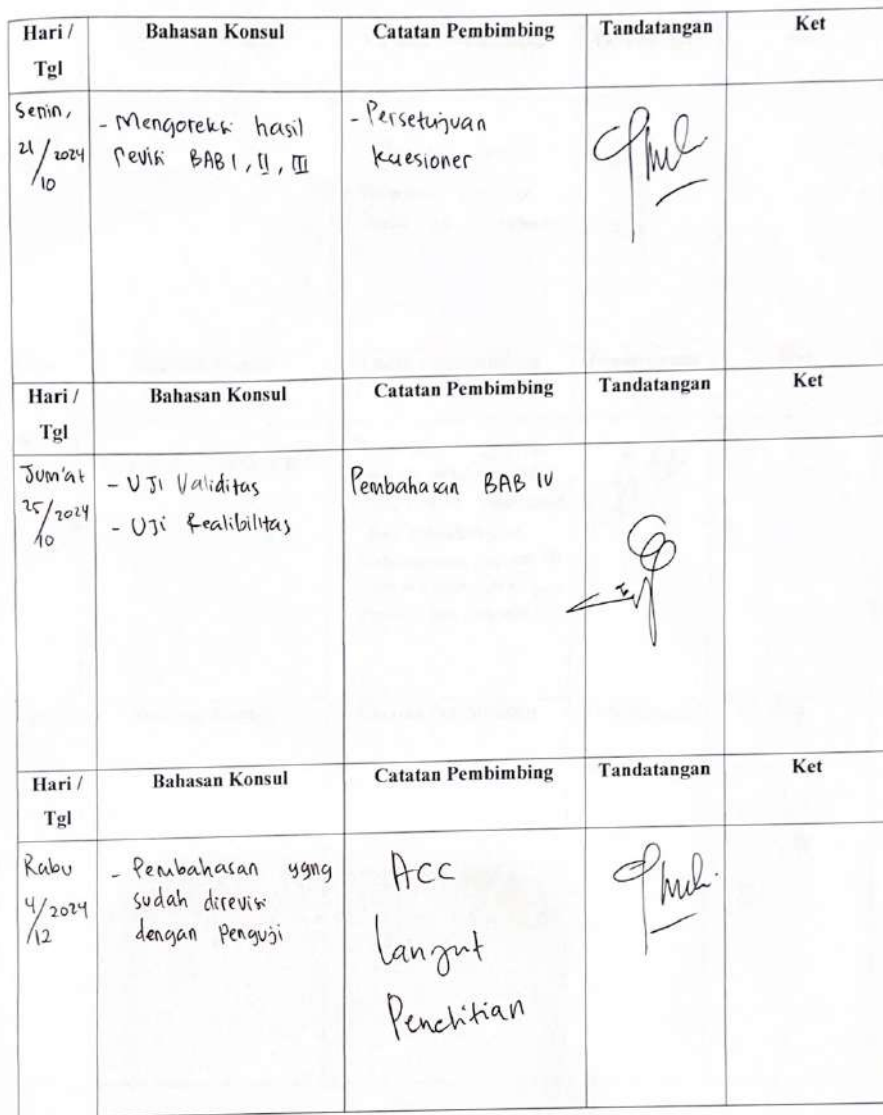 Hari / Tgl Bahasan Konsul Catatan Pembimbing Tandatangan Ket
Senin, 21/10 2024
- Mengoreksi hasil
revisi BAB I, II, III
- Persetujuan
kuesioner
Hari / Tgl Bahasan Konsul Catatan Pembimbing Tandatangan Ket
Jum'at 25/10 2024
- Uji Validitas
- Uji Realibilitas
Pembahasan BAB IV
Hari / Tgl Bahasan Konsul Catatan Pembimbing Tandatangan Ket
Rabu 4/12 2024
- Pembahasan yang
sudah direvisi
dengan Penguji
ACC
lanjut
Penelitian